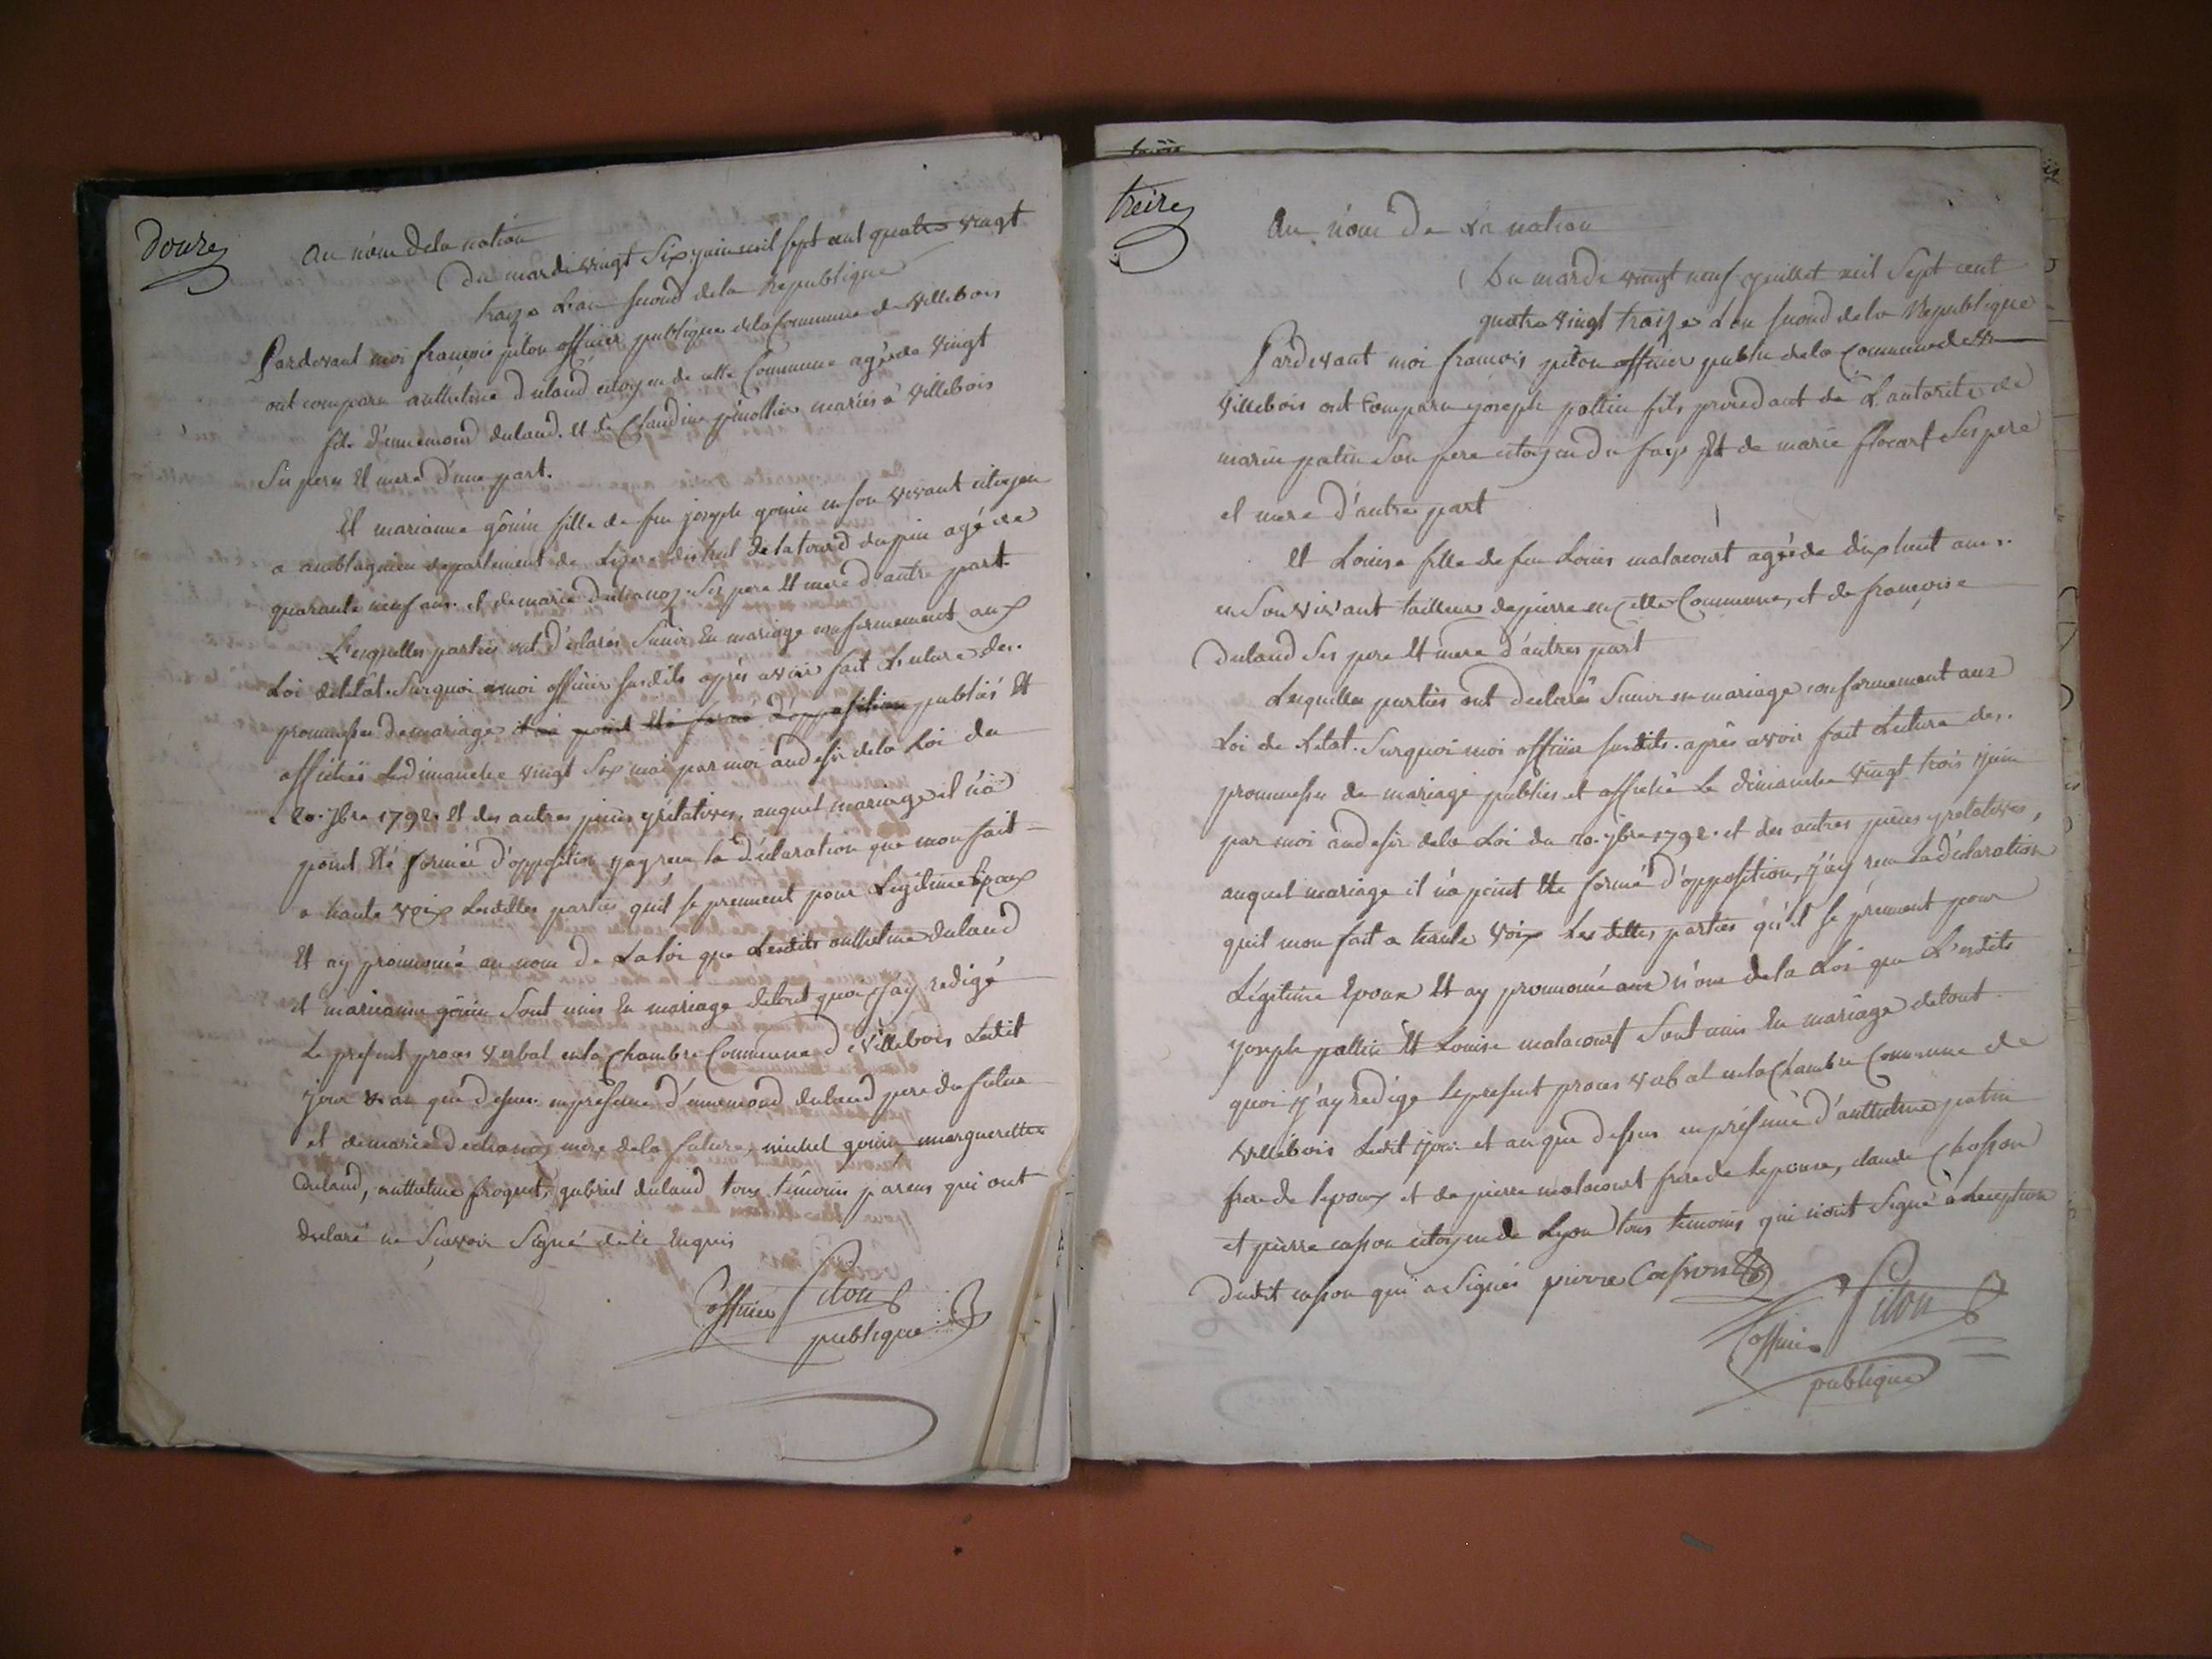 Douze
au nom dela nation
Du mardi vingt Six juin mil sept cent quatre vingt
traize L'an second dela Republique
Pardevant moi françois piton officier publique dela Commune de Villebois
ont comparu anthelme duland citoyen de cette Commune agé de vingt
fils d'ennemond duland. et de Claudine mariés à Villebois
Ses pere Et mere d'une part.
Et marianne goüin fille de feu joseph gouin en son vivant citoyen
a amblagnieu departement de Lizere district de latourd dupin agé de
quarante neuf ans. et de marie duchanoz. Ses pere Et mere d'autre part.
Lesquelles parties ont déclarés Sunir En mariage conformement aux
Loi deletat. Surquoi moi officier Susdits aprés avoir fait Lecture des.
promesses de mariage il n'a point Eté formé d'opposition publiés Et
affichés Ledimanche vingt Six mai par moi audesir dela Loi du
20. 7bre 1792. Et des autres pieces yrelatives. auquel mariage il n'a
point Eté formée d'opposition jay reçu la déclaration que mon fait
a haute voix Lesdittes parties quil se prennent pour Légitime Epoux
Et ay prononcé au nom De La loi que Lesdits anthelme duland
et marianne goüin Sont unis En mariage detout quoi j'ay redigé
Le present proces verbal enla Chambre Commune d Villebois Ledit
jour et an que dessus en présence d'ennemond duland pere du futur
et de marie duchanoz mere dela future, michel gouin, marguerette
Duland, anthelme froquet, gabriel duland tous témoins parens qui ont
declaré ne Scavoir Signé dece Enquis
Piton
officier
publique
treize
Au nom De La nation
Du mardi vingt neuf juillet mil Sept cent
quatre vingt traize L'an second dela Republique
Pardevant moi francois piton officier public dela Commune de
Villebois ont Comparu joseph pattin fils procedant de L'autorité de
marin patin Son pere citoyen du fays Et de marie flocart Ses pere
et mere d'autre part
Et Louise fille de feu Louis malacourt agée de dix huit ans.
en Son vivant tailleur depierre en cette Commune, et de françoise
Duland Ses pere Et mere d'autres part
Lesquelles parties ont declarés Sunir en mariage conformement aux
Loi de Letat. Surquoi moi officier susdits. aprés avoir fait Lecture des.
promesses de mariage publies et affiché Le dimanche vingt trois juin
par moi audesir dela Loi du 20. 7bre 1792. et des autres pieces yrelatives,
auquel mariage il n'a point Eté formé d'opposition, j'ay reçu La déclaration
quil mon fait a haute voix Les dittes parties qu'il se prennent pour
Légitime Epoux Et ay prononcé au nom dela Loi que L'esdits
joseph pattin Et Louise malacourt Sont unis En mariage detout
quoi j'ay redigé Lepresent proces verbal enla Chambre Commune de
Villebois Ledit jour et an que dessus en présence d'anthelme patin
frere de lepoux et de pierre malacourt frere de Lepouse, claude Chosson
et pierre casson citoyen de Lyon tous temoins qui n'ont Signé a Lexception
Dudit casson qui a Signés pierre Casson
Piton
officier
publique